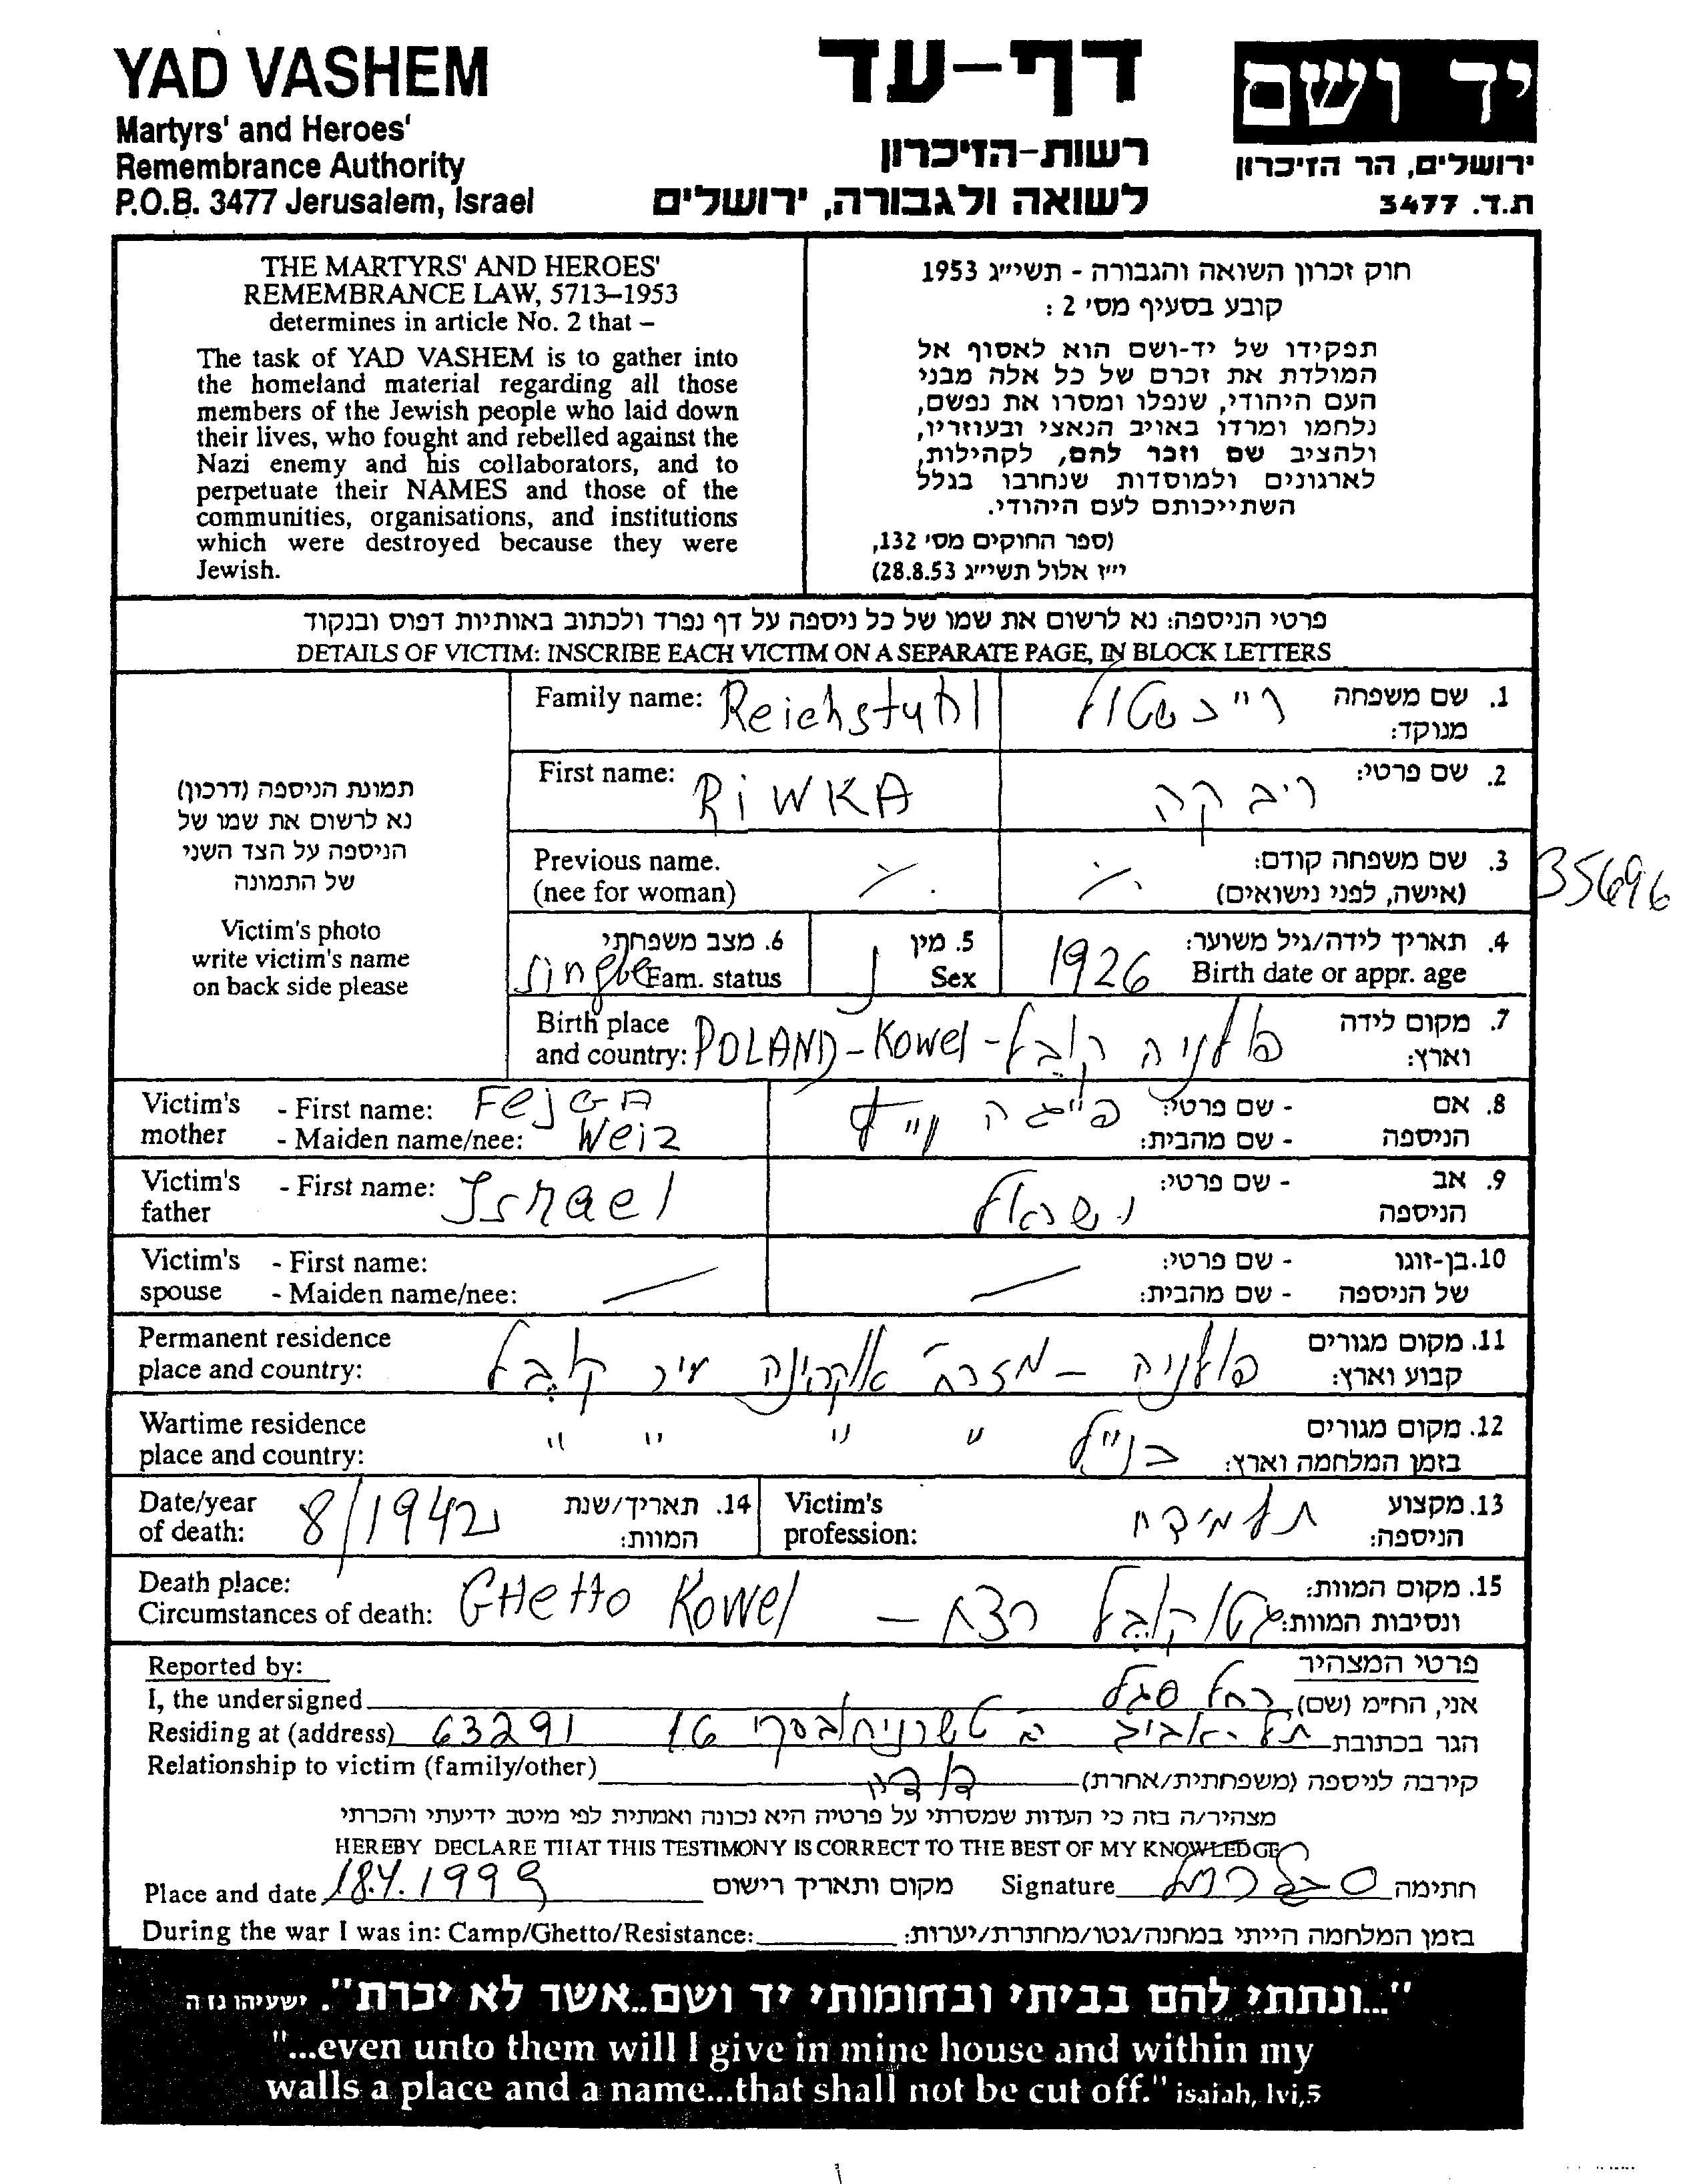 YAD VASHEM
Martyrs' and Heroes'
Remembrance Authority
P.O.B. 3477 Jerusalem, Israel
דף-עד
רשות-הזיכרון
לשואה ולגבורה, ירושלים
יד ושם
ירושלים, הר הזיכרון
ת.ד. 3477
THE MARTYRS' AND HEROES'
REMEMBRANCE LAW, 5713–1953
determines in article No. 2 that –
The task of YAD VASHEM is to gather into
the homeland material regarding all those
members of the Jewish people who laid down
their lives, who fought and rebelled against the
Nazi enemy and his collaborators, and to
perpetuate their NAMES and those of the
communities, organisations, and institutions
which were destroyed because they were
Jewish.
חוק זכרון השואה והגבורה - תשי״ג 1953
קובע בסעיף מס׳ 2 :
תפקידו של יד-ושם הוא לאסוף אל
המולדת את זכרם של כל אלה מבני
העם היהודי, שנפלו ומסרו את נפשם,
נלחמו ומרדו באויב הנאצי ובעוזריו,
ולהציב שם וזכר להם, לקהילות,
לארגונים ולמוסדות שנחרבו בגלל
השתייכותם לעם היהודי.
(ספר החוקים מס׳ 132,
י״ז אלול תשי״ג 28.8.53)
פרטי הניספה: נא לרשום את שמו של כל ניספה על דף נפרד ולכתוב באותיות דפוס ובנקוד
DETAILS OF VICTIM: INSCRIBE EACH VICTIM ON A SEPARATE PAGE, IN BLOCK LETTERS
תמונת הניספה (דרכון)
נא לרשום את שמו של
הניספה על הצד השני
של התמונה
Victim's photo
write victim's name
on back side please
Family name: Reichstuhl
1. שם משפחה מנוקד: רייכשטול
First name: RiWKA
2. שם פרטי: ריבקה
Previous name. (nee for woman) ٪
3. שם משפחה קודם: (אישה, לפני נישואים) ٪
35696
4. תאריך לידה/גיל משוער: Birth date or appr. age 1926
5. מין Sex נ
6. מצב משפחתי Fam. status single
7. מקום לידה וארץ: פולניה קובל
Birth place and country: POLAND - Kowel -
Victim's mother - First name: FejGA
- Maiden name/nee: Weiz
8. אם הניספה - שם פרטי: פייגה
- שם מהבית: וייץ
Victim's father - First name: Israel
9. אב הניספה - שם פרטי: ישראל
Victim's spouse - First name:
- Maiden name/nee:
10. בן-זוגו של הניספה - שם פרטי:
- שם מהבית:
Permanent residence place and country:
11. מקום מגורים קבוע וארץ: פולניה - מזרח אוקרינה עיר קובל
Wartime residence place and country:
12. מקום מגורים בזמן המלחמה וארץ: כנ״ל " " " "
Date/year of death: 8/1942
14. תאריך/שנת המוות:
Victim's profession:
13. מקצוע הניספה: תלמידה
Death place: Circumstances of death: GHetto Kowel
15. מקום המוות: ונסיבות המוות: גטו קובל רצח -
Reported by:
פרטי המצהיר
I, the undersigned
אני, הח״מ (שם) רחל סגל
Residing at (address)
הגר בכתובת תל-אביב טשרניחובסקי 16 63291
Relationship to victim (family/other)
קירבה לניספה (משפחתית/אחרת) דודה
מצהיר/ה בזה כי העדות שמסרתי על פרטיה היא נכונה ואמתית לפי מיטב ידיעתי והכרתי
HEREBY DECLARE THAT THIS TESTIMONY IS CORRECT TO THE BEST OF MY KNOWLEDGE
Place and date 18.4.1999 מקום ותאריך רישום
Signature סגל רחל חתימה
During the war I was in: Camp/Ghetto/Resistance:
בזמן המלחמה הייתי במחנה/גטו/מחתרת/יערות:
"...ונתתי להם בביתי ובחומותי יד ושם..אשר לא יכרת". ישעיהו נו ה
"...even unto them will I give in mine house and within my
walls a place and a name...that shall not be cut off." isaiah, lvi,5